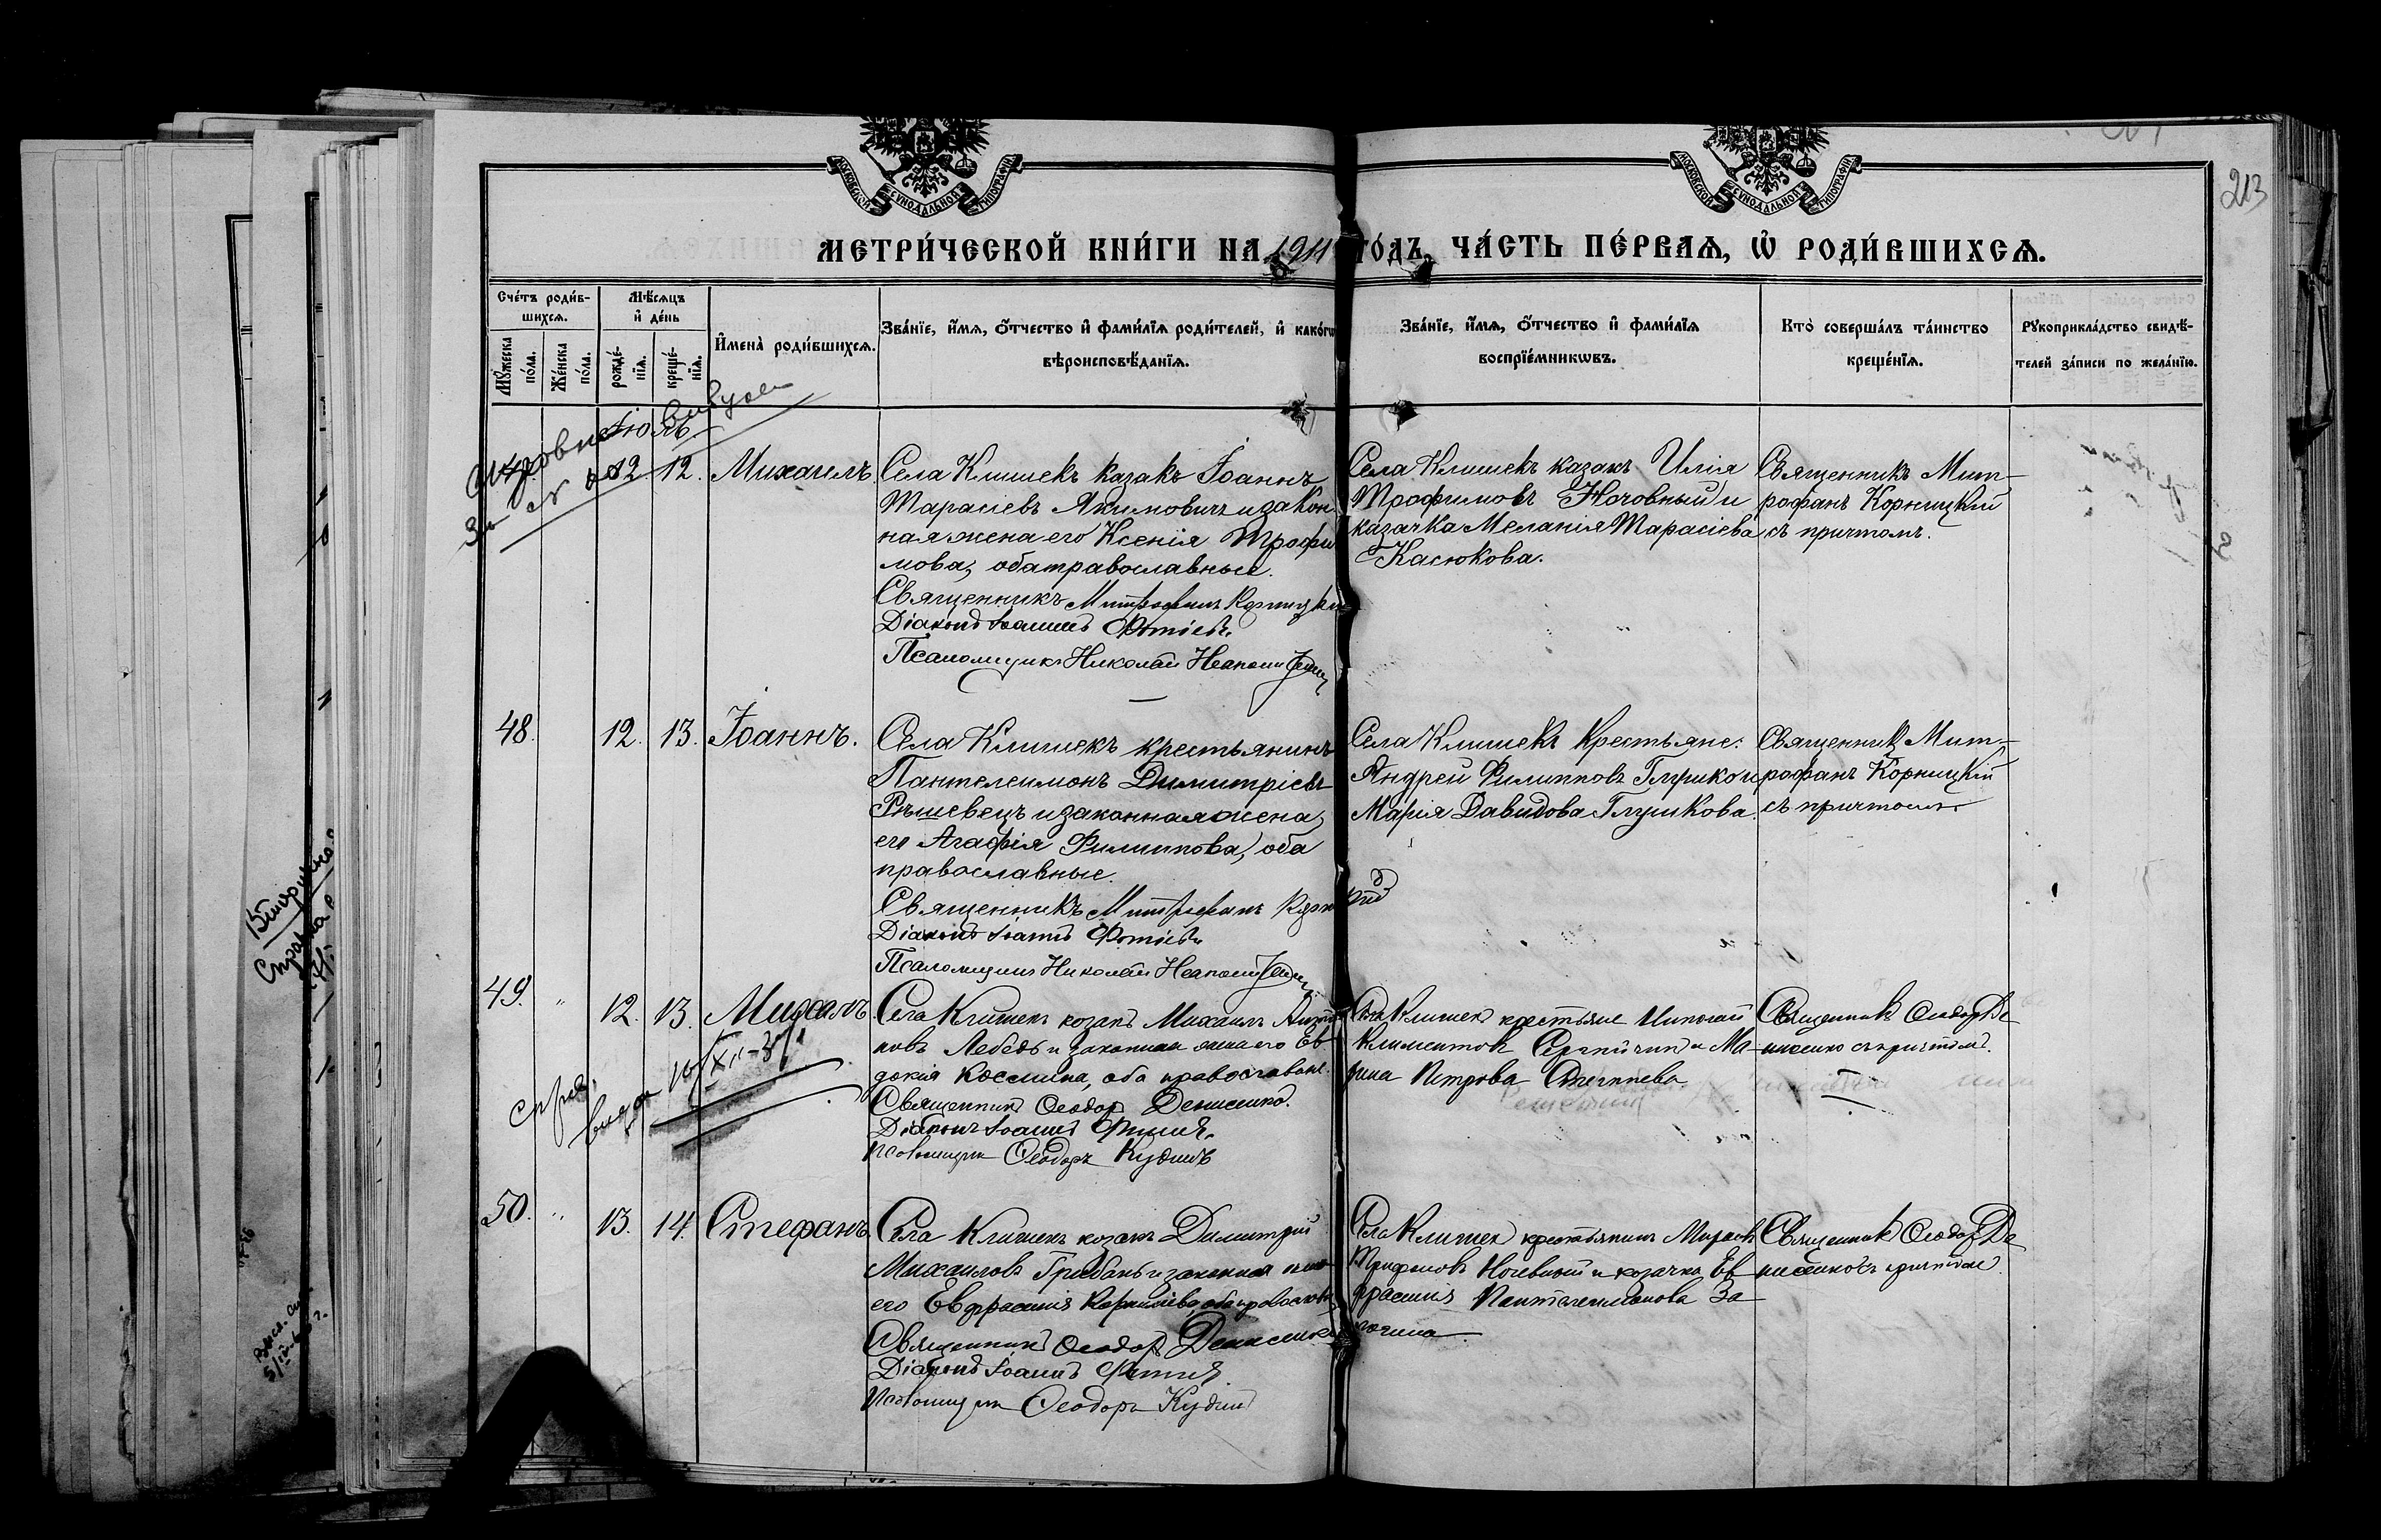 МОСКОВСКОЙ СѴНОДАЛЬНОЙ ТИПОГРАФІИ
МОСКОВСКОЙ СѴНОДАЛЬНОЙ ТИПОГРАФІИ
213
МЕТРИ́ЧЕСКОЙ КНИ́ГИ НА 1911 ГО́ДЪ, ЧА́СТЬ ПЕ́РВАѦ, Ѡ҆ РОДИ́ВШИХСѦ.
Сче́тъ роди́в-
шихсѧ.
Мѣ́сѧцъ
и҆ де́нь
Мꙋ́жеска по́ла.
Же́нска по́ла.
рожде́-
нїѧ.
креще́-
нїѧ.
И҆мена̀ роди́вшихсѧ.
Зва́нїе, и҆́мѧ, ѻ҆́тчество и҆ фами́лїѧ роди́телей, и҆ како́гѡ
вѣроисповѣ́данїѧ.
Зва́нїе, и҆́мѧ, ѻ҆́тчество и҆ фами́лїѧ
воспрїе́мникѡвъ.
Кто̀ соверша́лъ та́инство
креще́нїѧ.
Рꙋкоприкла́дство свидѣ́-
телей за́писи по жела́нїю.
Іюль.
12. 12. Михаилъ
Села Клишекъ казакъ Іоаннъ
Тарасіевъ Якимовичъ и закон
ная жена его Ксенія Трофи
мова, оба православные.
Священникъ Митрофанъ Корницкій
Діаконъ Іоаннъ Фотіевъ
Псаломщикъ Николай
Села Клишекъ казакъ Илія
Трофимовъ Ночовный и
казачка Меланія Тарасіева
Касюкова.
Священникъ Мит-
рофанъ Корницкій
съ причтомъ.
48. 12. 13. Іоаннъ.
Села Клишекъ крестьянинъ
Пантелеимонъ Димитріевъ
Рѣшевецъ и законная жена
его Агафія Филиппова, оба
православные.
Священникъ Митрофанъ Корницкій
Діаконъ Іоаннъ Фотіевъ
Псаломщикъ Николай
Села Клишекъ крестьяне:
Андрей Филипповъ Глушко и
Марія Давидова Глушкова.
Священникъ Мит-
рофанъ Корницкій
съ причтомъ
49. " 12. 13. Михаилъ
Села Клишекъ козакъ Михаилъ
новъ Лебедь и законная жена его Ев
докія Космина, оба православные.
Священникъ Ѳеодоръ Денисенко.
Діаконъ Іоаннъ Фотіевъ
Псаломщикъ Ѳеодоръ Кудинъ
Села Клишекъ крестьяне Николай
Климентовъ и Ма-
рина Петрова
Священникъ Ѳеодоръ Де
нисенко съ причтомъ.
50. " 13. 14. Стефанъ
Села Клишекъ козакъ Димитрій
Михаиловъ Грибанъ и законная жена
его Евфрасинія Корниліева, оба православные
Священникъ Ѳеодоръ Денисенко
Діаконъ Іоаннъ Фотіевъ
Псаломщикъ Ѳеодоръ Кудинъ
Села Клишекъ крестьянинъ
Трифоновъ и козачка Ев
фрасинія Пантелеимонова За
Священникъ Ѳеодоръ Де
нисенко съ причтомъ